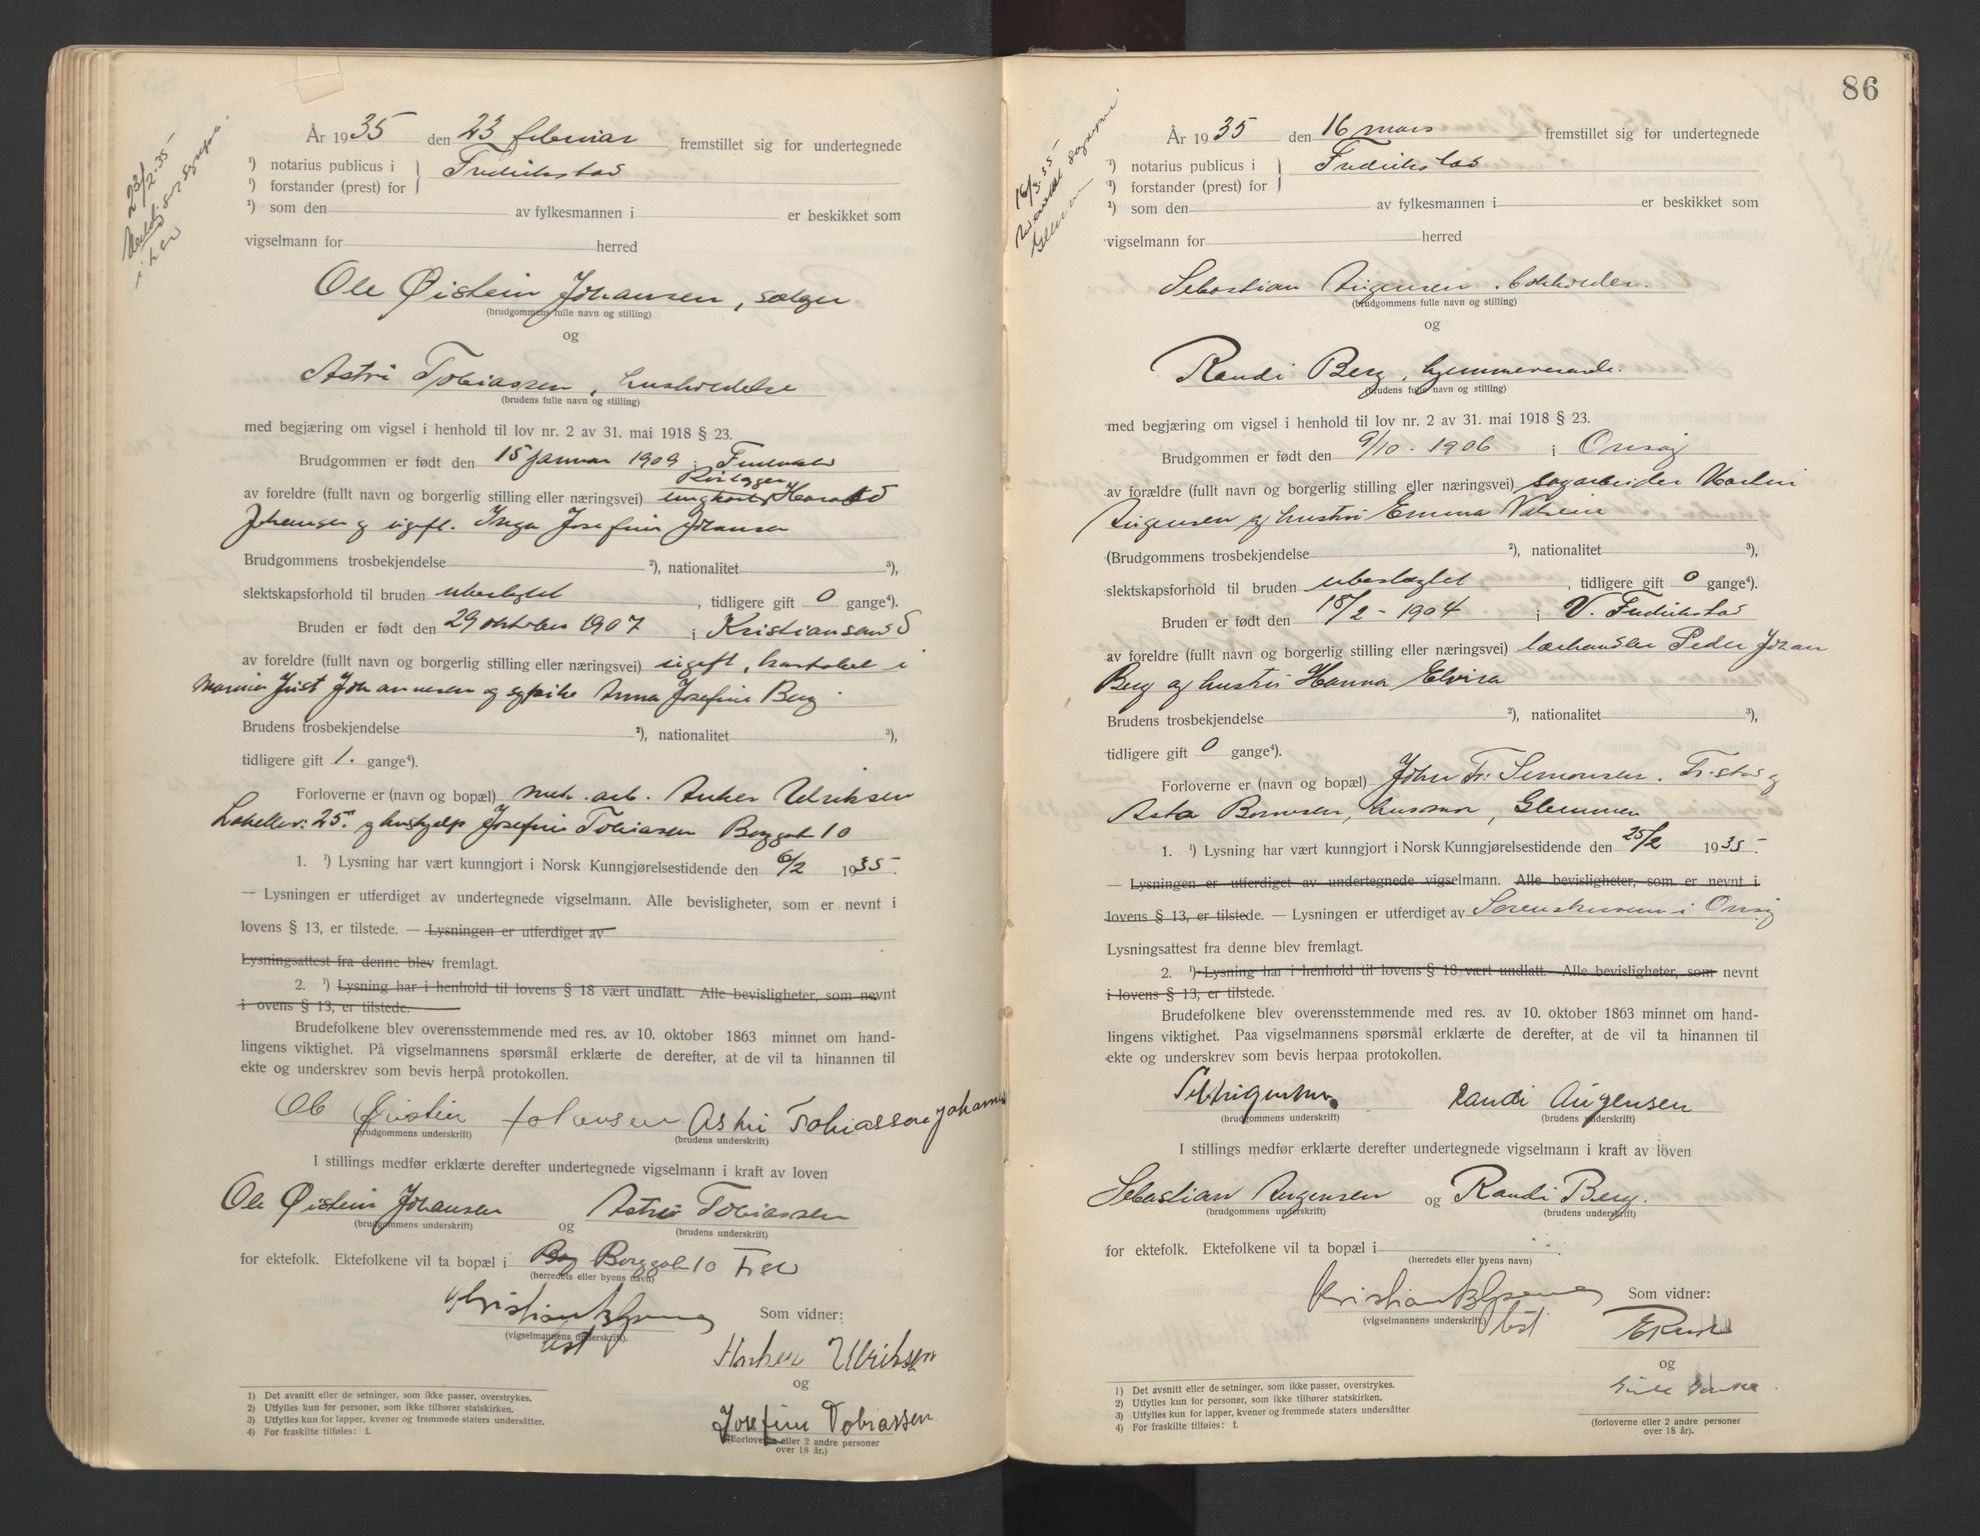 23/2.35
År 1935 den 23 februar fremstillet sig for undertegnede
¹) notarius publicus i } Fredrikstad
¹) forstander (prest) for
¹) som den av fylkesmannen i er beskikket som
vigselmann for herred
Ole Øistein Johansen, sælger
(brudgommens fulle navn og stilling)
og
Astri Tobiassen, husholderske
(brudens fulle navn og stilling)
med begjæring om vigsel i henhold til lov nr. 2 av 31. mai 1918 § 23.
Brudgommen er født den 15 januar 1909 i Fredrikstad
av foreldre (fullt navn og borgerlig stilling eller næringsvei) ungkarl Harald
Johansen og ugift. Inga Josefine Johansen
Brudgommens trosbekjendelse ²), nationalitet ³),
slektskapsforhold til bruden ubeslegtet, tidligere gift 0 gange⁴).
Bruden er født den 29 oktober 1907 i Kristiansand S
av foreldre (fullt navn og borgerlig stilling eller næringsvei) ugift,
Just Johannesen og sypike Anna Josefine Berg
Brudens trosbekjendelse ²), nationalitet ³),
tidligere gift 1. gange⁴).
Forloverne er (navn og bopæl) mek. arb. Anker Ulriksen
25 og hushjelp Josefine Tobiassen Borggat 10
1. ¹) Lysning har vært kunngjort i Norsk Kunngjørelsestidende den 6/2 1935.
— Lysningen er utferdiget av undertegnede vigselmann. Alle bevisligheter, som er nevnt i
lovens § 13, er tilstede. — Lysningen er utferdiget av
Lysningsattest fra denne blev fremlagt.
2. ¹) Lysning har i henhold til lovens § 18 vært undlatt. Alle bevisligheter, som nevnt
i ovens § 13, er tilstede.
Brudefolkene blev overensstemmende med res. av 10. oktober 1863 minnet om hand-
lingens viktighet. På vigselmannens spørsmål erklærte de derefter, at de vil ta hinannen til
ekte og underskrev som bevis herpå protokollen.
Ole Øistein Johansen Astri Tobiassen Johansen
(brudgommens underskrift) (brudens underskrift)
I stillings medfør erklærte derefter undertegnede vigselmann i kraft av loven
Ole Øistein Johansen og Astri Tobiassen
(brudgommens underskrift) (brudens underskrift)
for ektefolk. Ektefolkene vil ta bopæl i Borggat 10 Fr.stad
(herredets eller byens navn)
Som vidner:
(vigselmannens underskrift).
Anker Ulriksen
og
Josefine Tobiassen
(Forloverne eller 2 andre personer
over 18 år.)
1) Det avsnitt eller de setninger, som ikke passer, overstrykes.
2) Utfylles kun for personer, som ikke tilhører statskirken.
3) Utfylles kun for lapper, kvener og fremmede staters undersåtter.
4) For fraskilte tilføles: f.
86
16/3.35
Glemmen
År 1935 den 16 mars fremstillet sig for undertegnede
¹) notarius publicus i } Fredrikstad
¹) forstander (prest) for
¹) som den av fylkesmannen i er beskikket som
vigselmann for herred
Sebastian Augensen, bokholder.
(brudgommens fulle navn og stilling)
og
Randi Berg, hjemmeværende.
(brudens fulle navn og stilling)
med begjæring om vigsel i henhold til lov nr. 2 av 31. mai 1918 § 23.
Brudgommen er født den 9/10 - 1906 i Onsøy
av forældre (fullt navn og borgerlig stilling eller næringsvei) sagarbeider Martin
Augensen og hustru Emma
(Brudgommens trosbekjendelse ²), nationalitet ³),
slektskapsforhold til bruden ubeslægtet, tidligere gift 0 gange⁴).
Bruden er født den 18/2 - 1904 i V. Fredrikstad
av foreldre (fullt navn og borgerlig stilling eller næringsvei) lærhandler Peder Johan
Berg og hustru Hanna Elvira
Brudens trosbekjendelse ²), nationalitet ³),
tidligere gift 0 gange⁴).
Forloverne er (navn og bopæl) John Fr. Simonsen. Fr.stad og
Asta husmor, Glemmen
1. ¹) Lysning har vært kunngjort i Norsk Kunngjørelsestidende den 25/2 1935.
— Lysningen er utferdiget av undertegnede vigselmann. Alle bevisligheter, som er nevnt i
lovens § 13, er tilstede. — Lysningen er utferdiget av Sorenskriveren i Onsøy
Lysningsattest fra denne blev fremlagt.
2. ¹) Lysning har i henhold til lovens § 18 vært undlatt. Alle bevisligheter, som nevnt
i lovens § 13, er tilstede.
Brudefolkene blev overensstemmende med res. av 10. oktober 1863 minnet om hand-
lingens viktighet. Paa vigselmannens spørsmål erklærte de derefter, at de vil ta hinannen til
ekte og underskrev som bevis herpaa protokollen.
Randi Augensen
(brudgommens underskrift) (brudens underskrift)
I stillings medfør erklærte derefter undertegnede vigselmann i kraft av loven
Sebastian Augensen og Randi Berg.
(brudgommens underskrift) (brudens underskrift)
for ektefolk. Ektefolkene vil ta bopæl i
(herredets eller byens navn)
Som vidner:
(vigselmannens underskrift)
og
(forloverne eller 2 andre personer
over 18 år).
1) Det avsnitt eller de setninger, som ikke passer, overstrykes.
2) Utfylles kun for personer, som ikke tilhører statskirken.
3) Utfylles kun for lapper, kvener og fremmede staters undersåtter
4) For fraskilte tilføles: f.